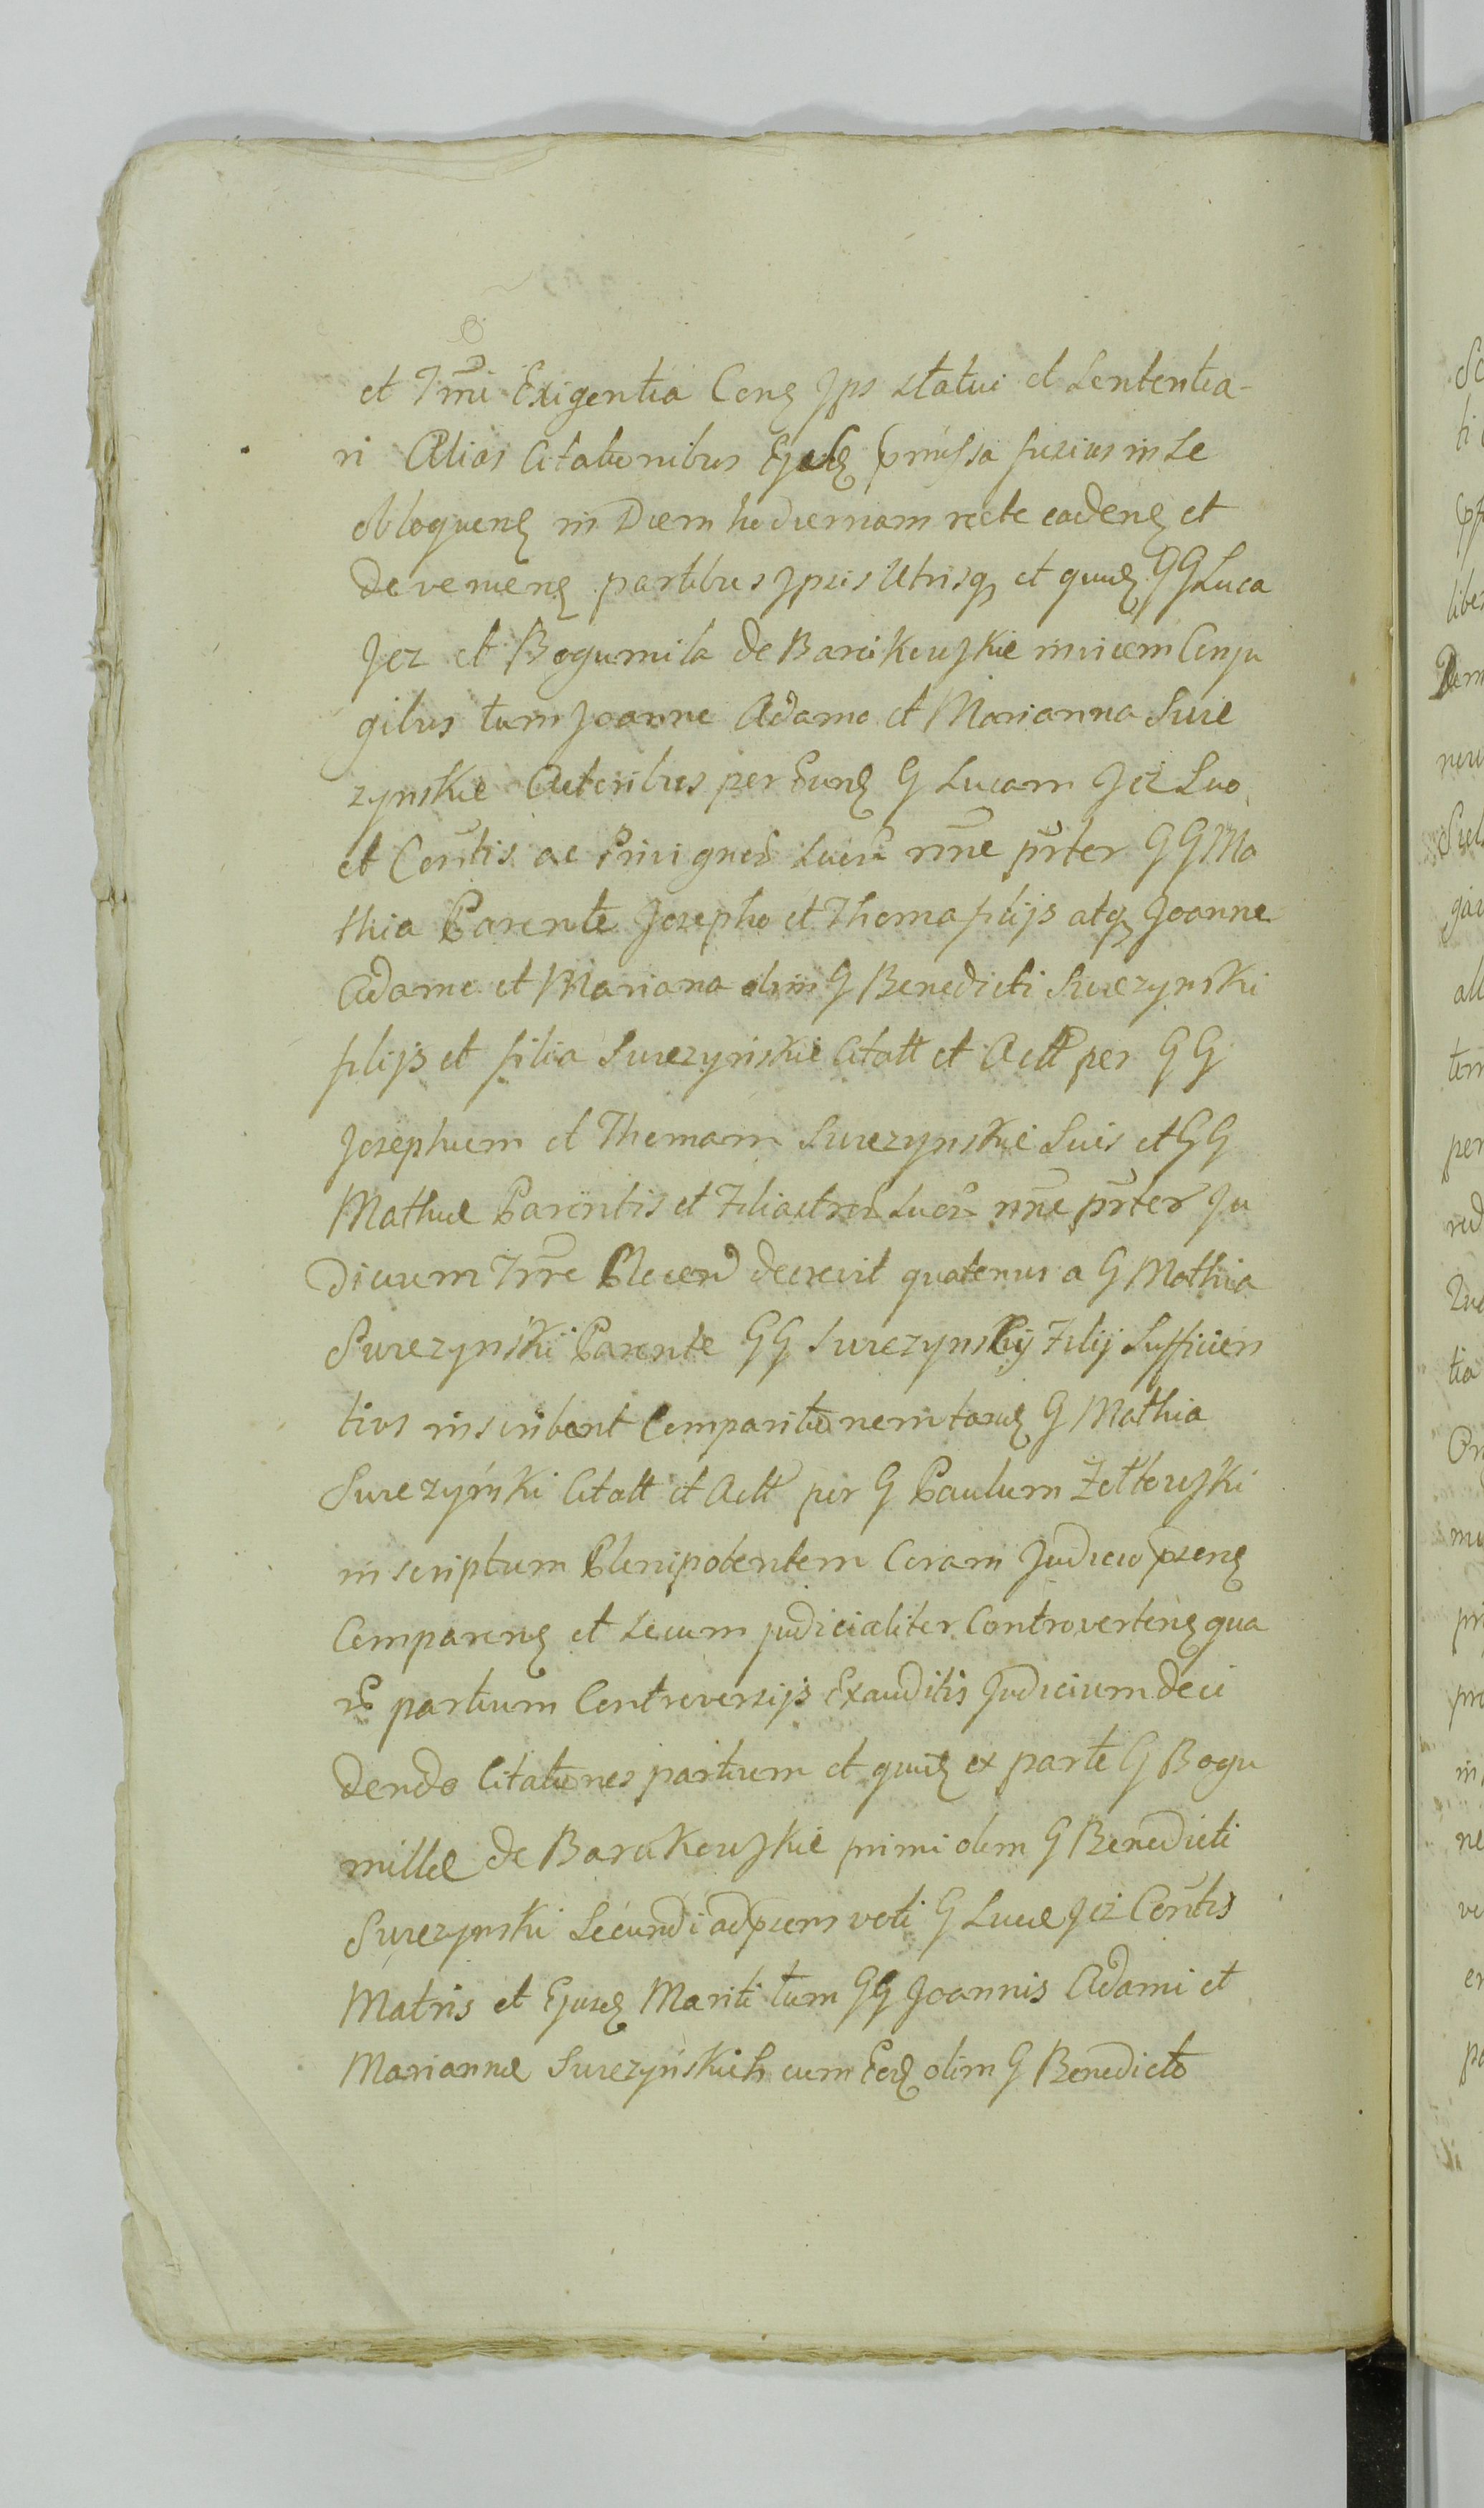 et Tmi Exigentia Conz Jps statui et Sententia-
ri Alias Citationibus Ejusdz pmissa fusius in se
obloquenz in Diem hodiernam recte cadenz et
devenienz partibus Jpsis Utrisq et quidz GG Luca
Jez et Bogumila de Barcikowskie invicem Conju
gibus tum Joanne Adamo et Marianna Swie
zynskie Actoribus per Eundz G Lucam Jez Suo
et Conrtis ac Privignor suor nrne prter GG Ma
thia Parente Josepho et Thoma filijs atq Joanne
Adamo et Mariana olim G Benedicti Swiezynski
filijs et filia Swiezynskie Citatt et Actt per GG
Josephum et Thomam Swiezynskie Suis et GG
Mathiæ Parentis et Filiastror suor nrne prter Ju
dicium Trre Plocen decrevit quatenus a G Mathia
Swiezynski Parente GG Swiezynscij Filij Sufficien
tius inscribant Comparitionem tandz G Mathia
Swiezyński Citatt et Actt per G Paulum Żołtowski
inscriptum Plenipotentem Coram Judicio psenz
Comparenz et Secum judicialiter Controvertenz qua
r partium Controversijs Exauditis Judicium deci
dendo Citationes partium et quidz ex parte G Bogu
millæ de Barcikowskie primi olim G Benedicti
Swiezynski Secundi ad psens voti G Lucæ Jez Conrtis
Matris et Ejusdz Mariti tum GG Joannis Adami et
Mariannæ Swiezyńskich cum Eodz olim G Benedicto